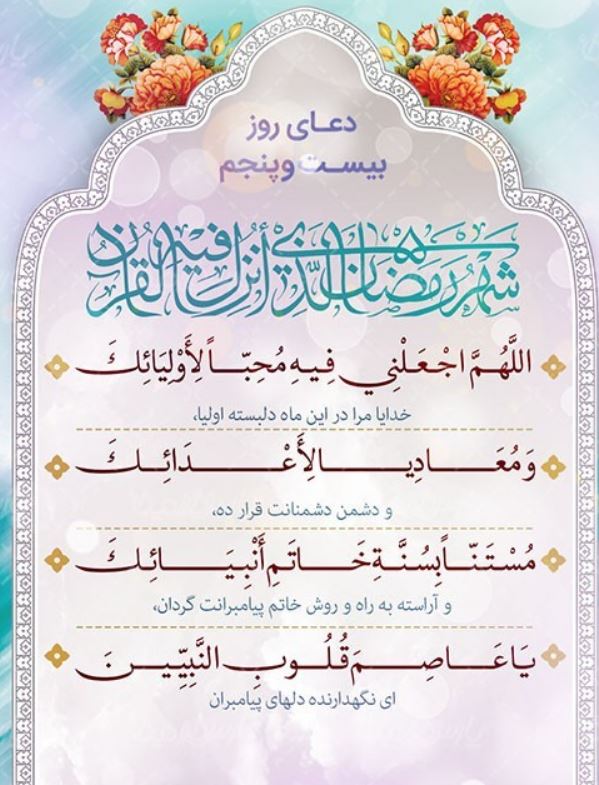 دعای روز
بیست و پنجم
شهر رمضان الذي أنزل فيه القرآن
اللَّهُمَّ اجْعَلْنِي فِيهِ مُحِبّاً لِأَوْلِيَائِكَ
خدایا مرا در این ماه دلبسته اولیا،
وَ مُعَادِيا لِأَعْدَائِكَ
و دشمن دشمنانت قرار ده،
مُسْتَنّاً بِسُنَّةِ خَاتَمِ أَنْبِيَائِكَ
و آراسته به راه و روش خاتم پیامبرانت گردان،
يَا عَاصِمَ قُلُوبِ النَّبِيِّينَ
ای نگهدارنده دلهای پیامبران